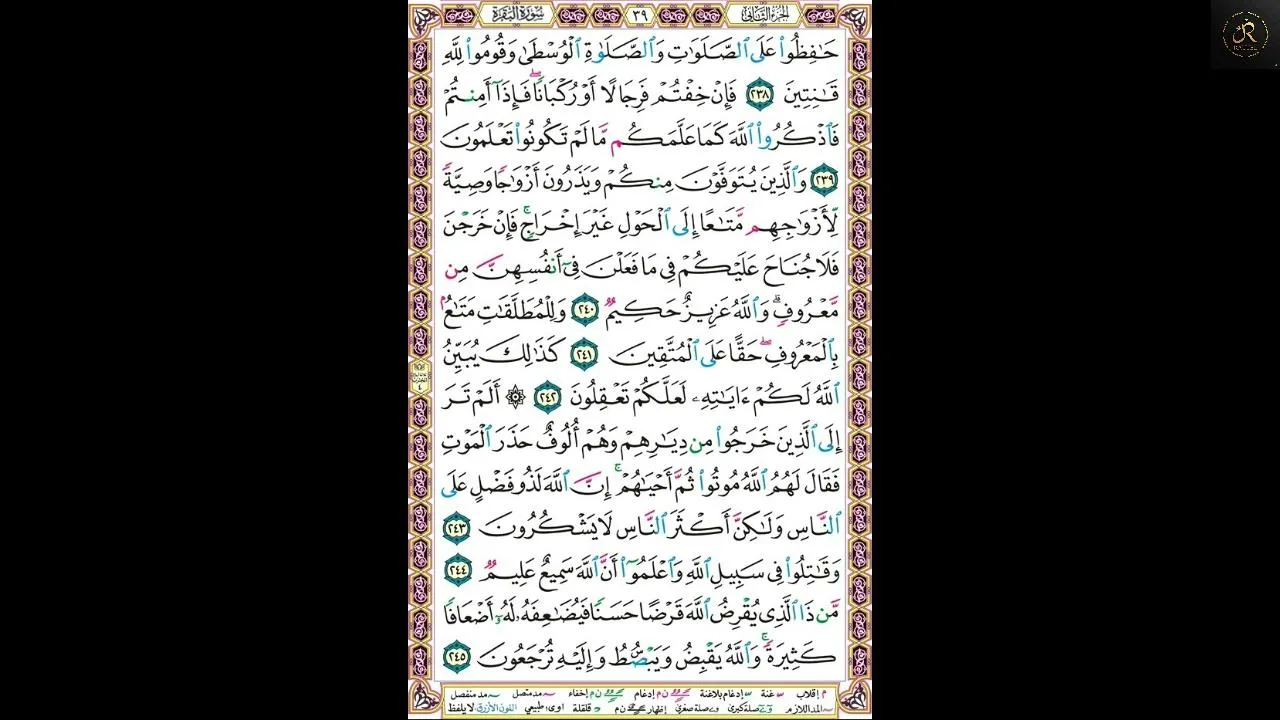 الجزء الثاني ٣٩ سورة البقرة
حَـٰفِظُوا۟ عَلَى ٱلصَّلَوَٰتِ وَٱلصَّلَوٰةِ ٱلْوُسْطَىٰ وَقُومُوا۟ لِلَّهِ
قَـٰنِتِينَ ٢٣٨ فَإِنْ خِفْتُمْ فَرِجَالًا أَوْ رُكْبَانًا ۖ فَإِذَآ أَمِنتُمْ
فَٱذْكُرُوا۟ ٱللَّهَ كَمَا عَلَّمَكُم مَّا لَمْ تَكُونُوا۟ تَعْلَمُونَ
٢٣٩ وَٱلَّذِينَ يُتَوَفَّوْنَ مِنكُمْ وَيَذَرُونَ أَزْوَٰجًا وَصِيَّةً
لِّأَزْوَٰجِهِم مَّتَـٰعًا إِلَى ٱلْحَوْلِ غَيْرَ إِخْرَاجٍ ۚ فَإِنْ خَرَجْنَ
فَلَا جُنَاحَ عَلَيْكُمْ فِى مَا فَعَلْنَ فِىٓ أَنفُسِهِنَّ مِن
مَّعْرُوفٍ ۗ وَٱللَّهُ عَزِيزٌ حَكِيمٌ ٢٤٠ وَلِلْمُطَلَّقَـٰتِ مَتَـٰعٌۢ
بِٱلْمَعْرُوفِ ۖ حَقًّا عَلَى ٱلْمُتَّقِينَ ٢٤١ كَذَٰلِكَ يُبَيِّنُ
ٱللَّهُ لَكُمْ ءَايَـٰتِهِۦ لَعَلَّكُمْ تَعْقِلُونَ ٢٤٢ ۞ أَلَمْ تَرَ
إِلَى ٱلَّذِينَ خَرَجُوا۟ مِن دِيَـٰرِهِمْ وَهُمْ أُلُوفٌ حَذَرَ ٱلْمَوْتِ
فَقَالَ لَهُمُ ٱللَّهُ مُوتُوا۟ ثُمَّ أَحْيَـٰهُمْ ۚ إِنَّ ٱللَّهَ لَذُو فَضْلٍ عَلَى
ٱلنَّاسِ وَلَـٰكِنَّ أَكْثَرَ ٱلنَّاسِ لَا يَشْكُرُونَ ٢٤٣
وَقَـٰتِلُوا۟ فِى سَبِيلِ ٱللَّهِ وَٱعْلَمُوٓا۟ أَنَّ ٱللَّهَ سَمِيعٌ عَلِيمٌ ٢٤٤
مَّن ذَا ٱلَّذِى يُقْرِضُ ٱللَّهَ قَرْضًا حَسَنًا فَيُضَـٰعِفَهُۥ لَهُۥٓ أَضْعَافًا
كَثِيرَةً ۚ وَٱللَّهُ يَقْبِضُ وَيَبْصُۜطُ وَإِلَيْهِ تُرْجَعُونَ ٢٤٥
م إقلاب غنة إدغام بلاغنة ن م إدغام ن م إخفاء مد متصل مد منفصل
المد اللازم صلة كبرى صلة صغرى إظهار ن م قلقلة اوى طبيعي اللون الأزرق لا يلفظ